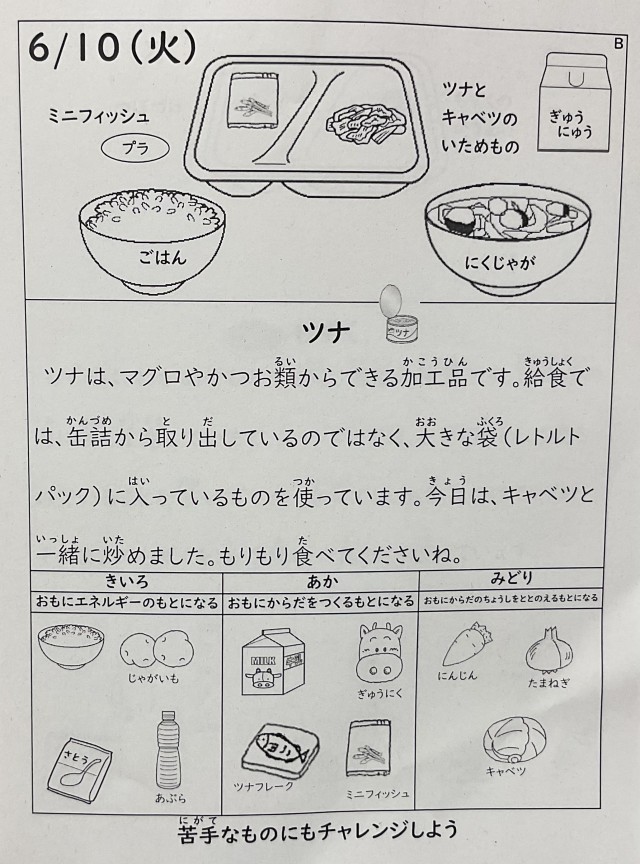 6/10(火)
B
ミニフィッシュ
プラ
ツナと
キャベツの
いためもの
ぎゅう
にゅう
ごはん
にくじゃが
ツナ
ツナ
ツナは、マグロやかつお類からできる加工品です。給食で
は、缶詰から取り出しているのではなく、大きな袋(レトルト
パック)に入っているものを使っています。今日は、キャベツと
一緒に炒めました。もりもり食べてくださいね。
きいろ
あか
みどり
おもにエネルギーのもとになる
おもにからだをつくるもとになる
おもにからだのちょうしをととのえるもとになる
じゃがいも
MILK
ぎゅうにく
にんじん
たまねぎ
さとう
あぶら
ツナフレーク
ミニフィッシュ
キャベツ
苦手なものにもチャレンジしよう